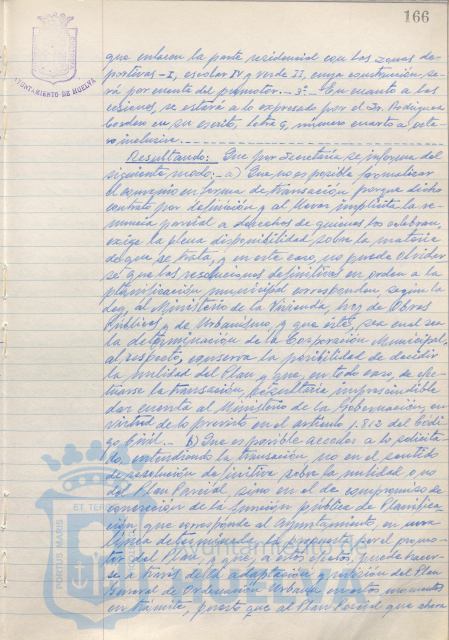 166
AYUNTAMIENTO DE HUELVA
que enlacen la parte residencial con las zonas de-
portivas-I, escolar IV y verde II, cuya construcción se-
rá por cuenta del promotor.- 3º- En cuanto a las
cesiones, se estará a lo expresado por el Sr. Rodríguez
Cordon en su escrito, letra G, número cuarto a octa-
vo inclusive.
Resultando: Que por Secretaría se informa del
siguiente modo:- a) Que no es posible formalizar
el convenio en forma de transacción porque dicho
contrato por definición y al llevar implícita la re-
nuncia parcial a derechos de quienes los celebran,
exige la plena disponibilidad sobre la materia
de que se trata, y en este caso, no puede olvidar
se que las resoluciones definitivas en orden a la
planificación municipal corresponden según la
Ley, al Ministerio de la Vivienda, hoy de Obras
Públicas y de Urbanismo, y que éste, sea cual sea
la determinación de la Corporación Municipal,
al respecto, conserva la posibilidad de decidir
la nulidad del Plan y que, en todo caso, de efec-
tuarse la transacción, resultaría imprescindible
dar cuenta al Ministerio de la Gobernación, en
virtud de lo previsto en el artículo 1.812 del Códi
go Civil.- b) Que es posible acceder a lo solicita
do, entendiendo la transacción no en el sentido
de resolución definitiva sobre la nulidad o no
del Plan Parcial, sino en el de compromiso de
concreción de la función pública de Planifica
ción, que corresponde al Ayuntamiento, en una
línea determinada, la propuesta por el promo-
tor del Plan, y que, a estos efectos, puede hacer-
se a través de la adaptación y revisión del Plan
General de Ordenación Urbana en estos momentos
en trámite, puesto que al Plan Parcial que ahora
PORTUS MARIS ET TERR
Ayuntamiento de